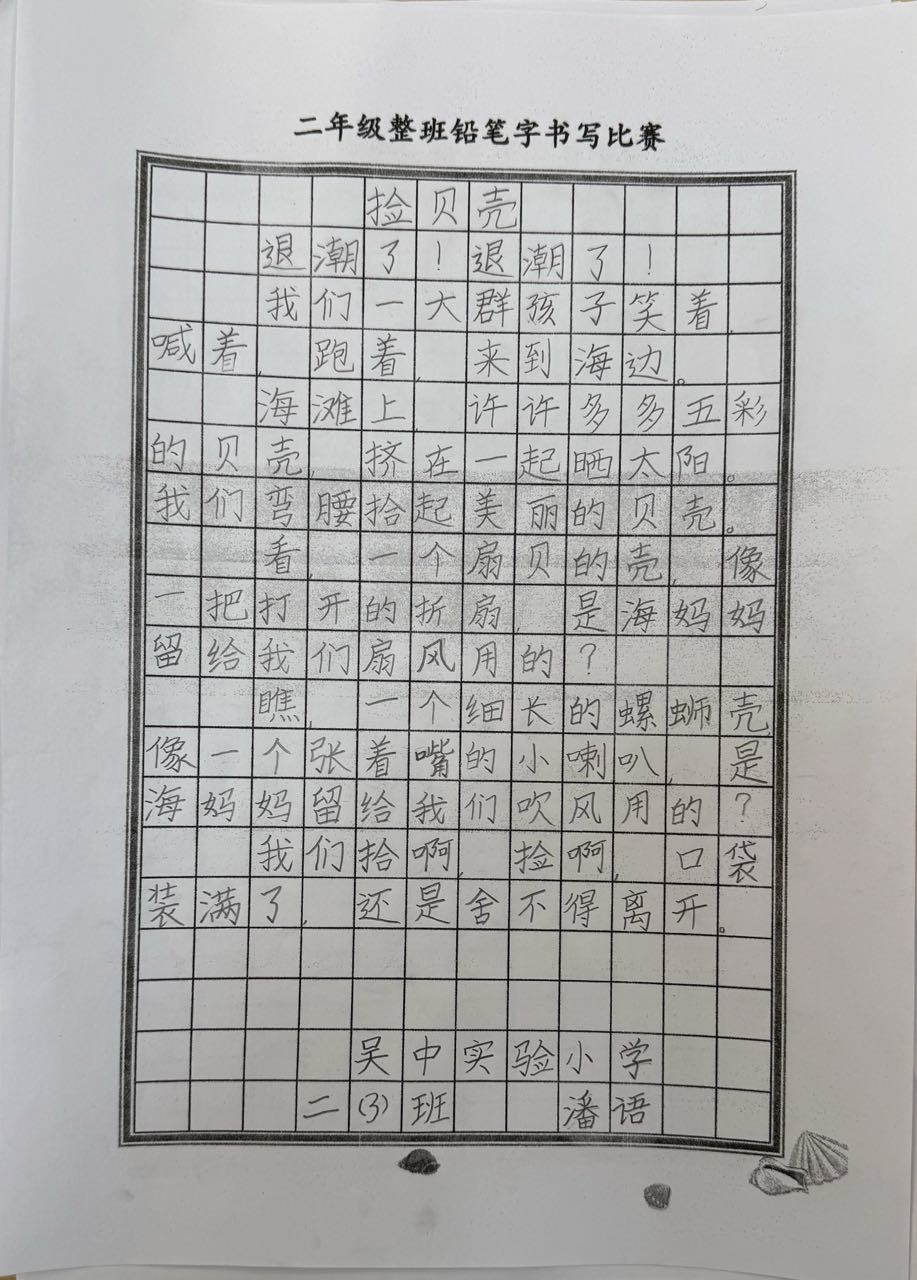 二年级整班铅笔字书写比赛
捡贝壳
退潮了！退潮了！
我们一大群孩子笑着,
喊着,跑着,来到海边。
海滩上,许许多多五彩
的贝壳,挤在一起晒太阳。
我们弯腰拾起美丽的贝壳。
看,一个扇贝的壳,像
一把打开的折扇,是海妈妈
留给我们扇风用的?
瞧,一个细长的螺蛳壳
像一个张着嘴的小喇叭,是
海妈妈留给我们吹风用的?
我们拾啊,捡啊,口袋
装满了,还是舍不得离开。
吴中实验小学
二(3)班 潘语